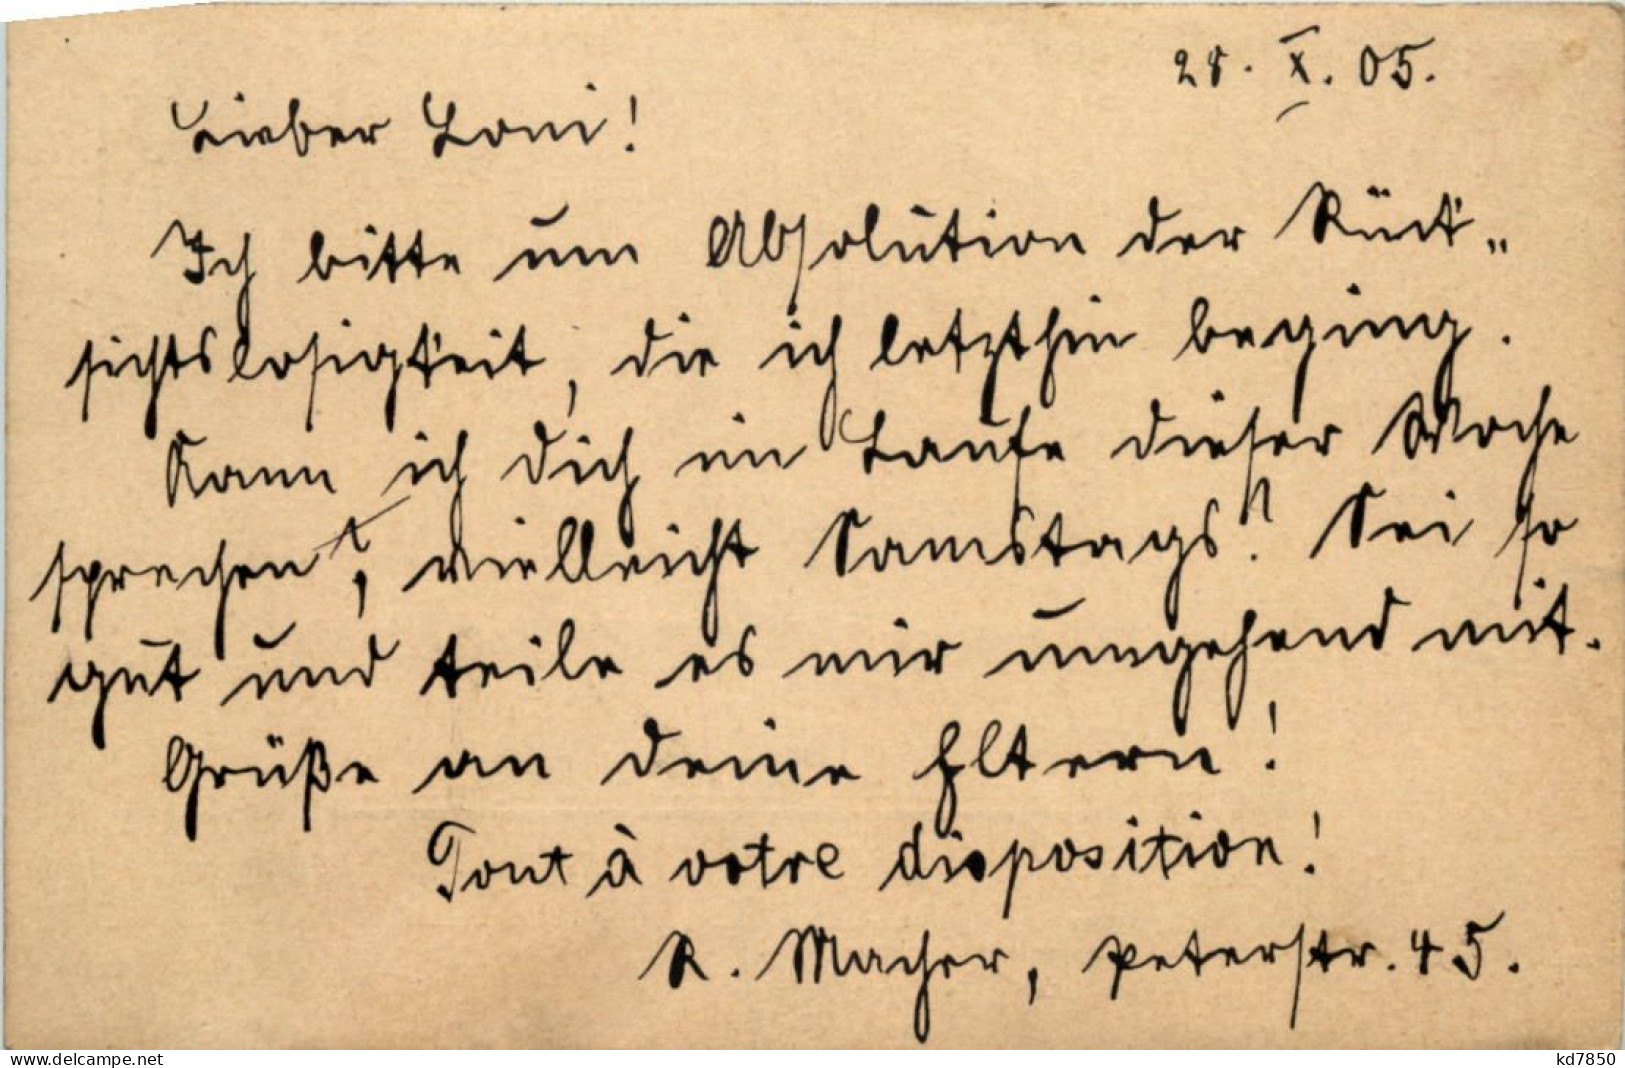 28. X. 05.
Lieber Loni!
Ich bitte um Absolution der Rück„
sichtslosigkeit, die ich letzthin beging.
Kann ich dich im Laufe dieser Woche
sprechen, vielleicht Samstags? Sei so
gut und teile es mir umgehend mit.
Grüße an deine Eltern!
Tout à votre disposition!
R. Macher, Peterstr. 45.
www.delcampe.net
kd7850